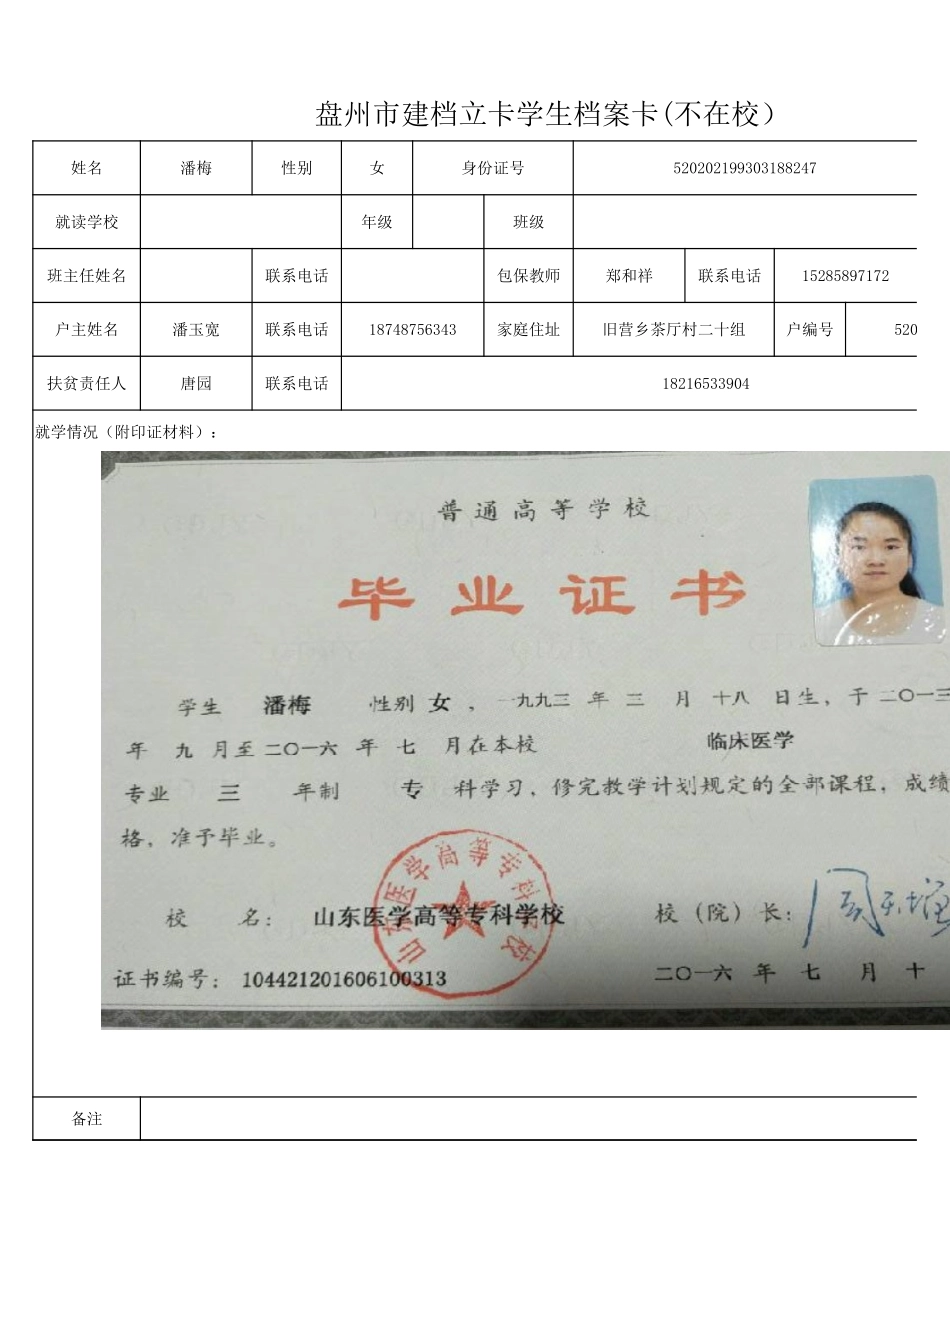 盘州市建档立卡学生档案卡(不在校）
姓名 潘梅 性别 女 身份证号 520202199303188247
就读学校 年级 班级
班主任姓名 联系电话 包保教师 郑和祥 联系电话 15285897172
户主姓名 潘玉宽 联系电话 18748756343 家庭住址 旧营乡茶厅村二十组 户编号 520
扶贫责任人 唐园 联系电话 18216533904
就学情况（附印证材料）：
普通高等学校
毕业证书
学生 潘梅 性别 女 ，一九九三 年 三 月 十八 日生，于 二〇一三
年 九 月至 二〇一六 年 七 月在本校 临床医学
专业 三 年制 专 科学习，修完教学计划规定的全部课程，成绩
格，准予毕业。
山东医学高等专科学校
校 名： 山东医学高等专科学校 校（院）长：
证书编号：104421201606100313 二〇一六 年 七 月 十
备注